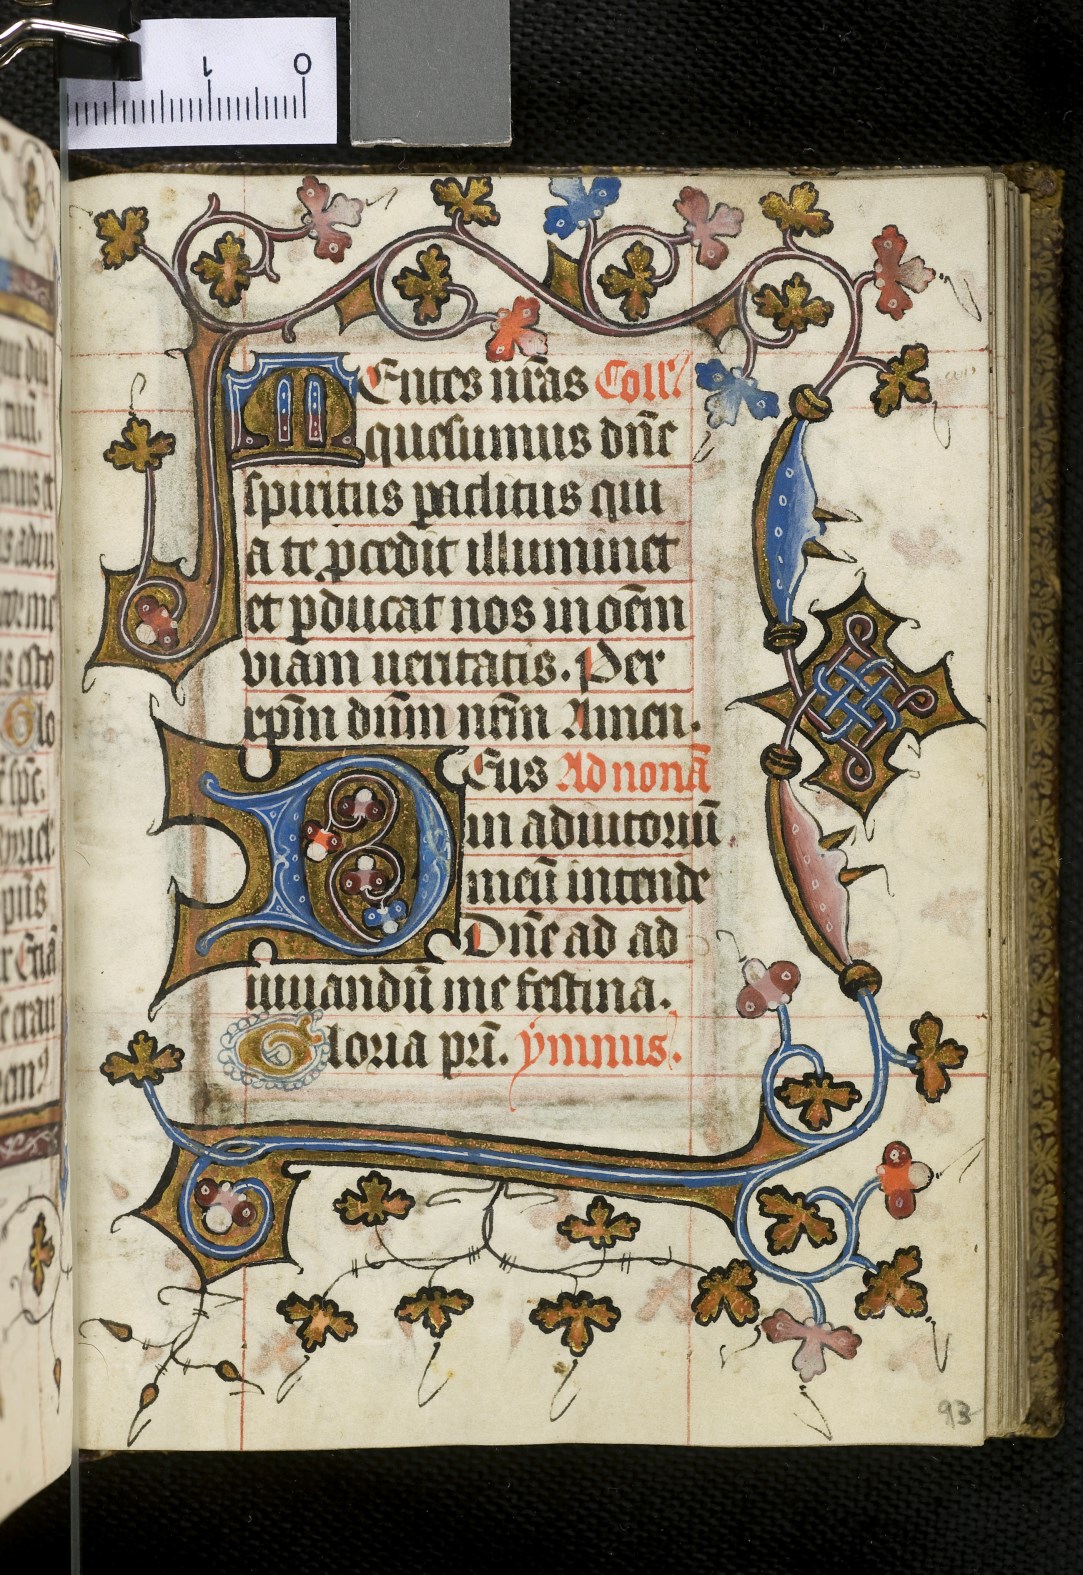 1 0
MEntes nr̄as Coll'
quesumus dn̄e
spiritus paclitus qui
a te pcedit illuminet
et pducat nos in oēm
viam ueritatis. Per
xp̄m dn̄m nr̄m Amen.
DEus Ad nonā
in adiutoriū
meū intende
Dn̄e ad ad
iuuandū me festina.
Gloria pr̄i. ymnus.
93